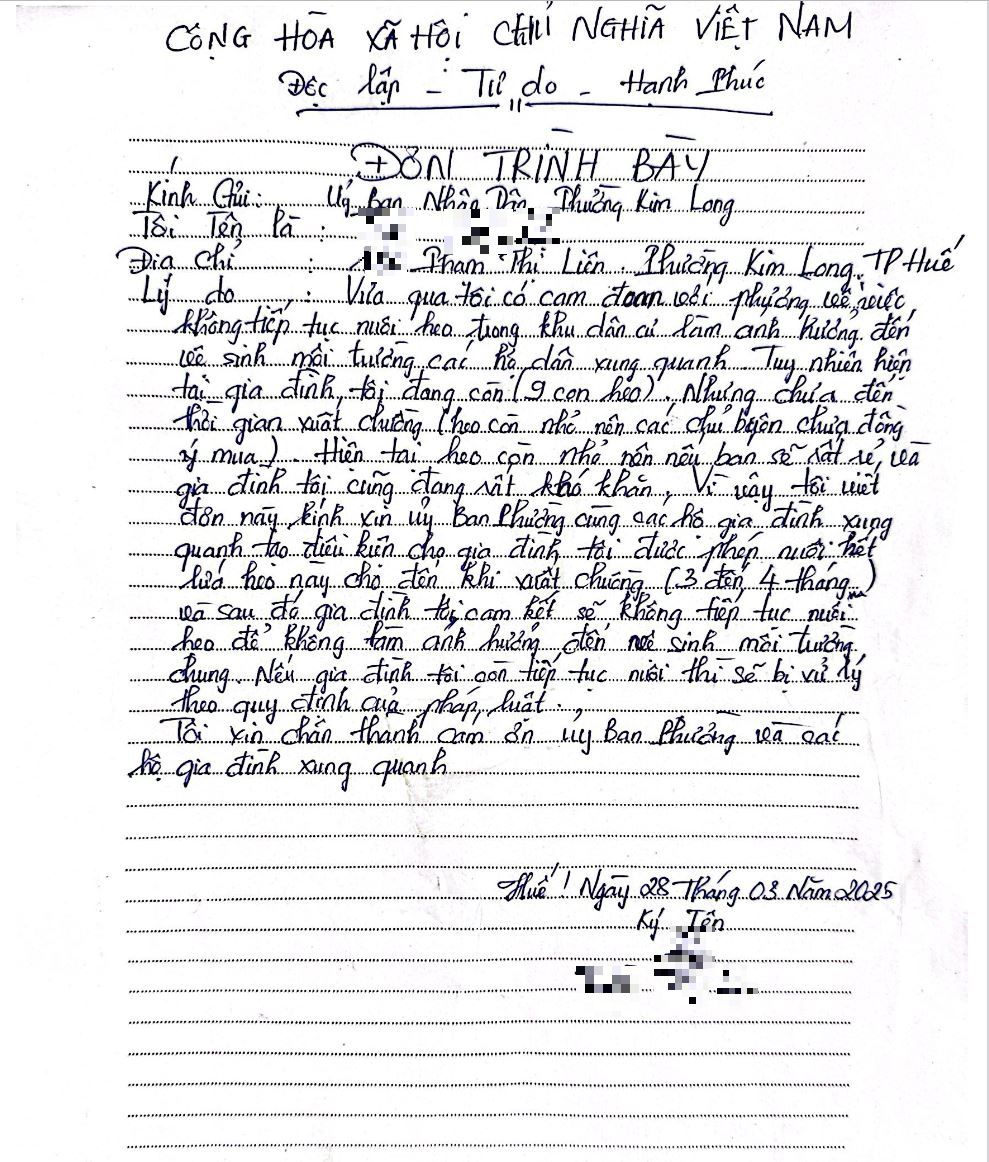 CỘNG HÒA XÃ HỘI CHỦ NGHĨA VIỆT NAM
Độc lập - Tự do - Hạnh Phúc
ĐƠN TRÌNH BÀY
Kính Gửi: Uỷ Ban Nhân Dân Phường Kim Long
Tôi Tên Là :
Địa chỉ : Phạm Thị Liên. Phường Kim Long, TP Huế
Lý do : Vừa qua tôi có cam đoan với phường về việc
không tiếp tục nuôi heo trong khu dân cư làm ảnh hưởng đến
vệ sinh môi tường các hộ dân xung quanh. Tuy nhiên hiện
tại gia đình tôi đang còn (9 con heo). Nhưng chưa đến
thời gian xuất chuồng (heo còn nhỏ nên các chủ buôn chưa đồng
ý mua). Hiện tại heo còn nhỏ nên nếu bán sẽ rất rẻ, và
gia đình tôi cũng đang rất khó khăn, Vì vậy tôi viết
đơn này kính xin ủy Ban Phường cùng các hộ gia đình xung
quanh tạo điều kiện cho gia đình tôi được phép nuôi hết
lứa heo này cho đến khi xuất chuồng (3 đến 4 tháng)
và sau đó gia đình tôi cam kết sẽ không tiếp tục nuôi
heo để không làm ảnh hưởng đến vệ sinh môi tường
chung. Nếu gia đình tôi còn tiếp tục nuôi thì sẽ bị xử lý
theo quy định của pháp luật.
Tôi xin chân thành cảm ơn ủy Ban Phường và các
hộ gia đình xung quanh
Huế! Ngày 28 Tháng 03 Năm 2025
Ký Tên